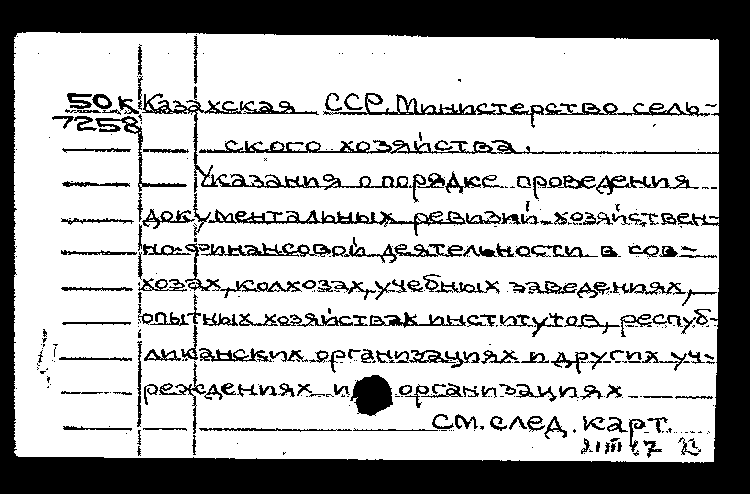 50к Казахская ССР. Министерство сель-
7258
ского хозяйства.
Указания о порядке проведения
документальных ревизий хозяйствен-
но-финансовой деятельности в сов-
хозах, колхозах, учебных заведениях,
опытных хозяйствах институтов, респуб-
ликанских организациях и других уч-
реждениях и организациях
см. след. карт.
21 III 67